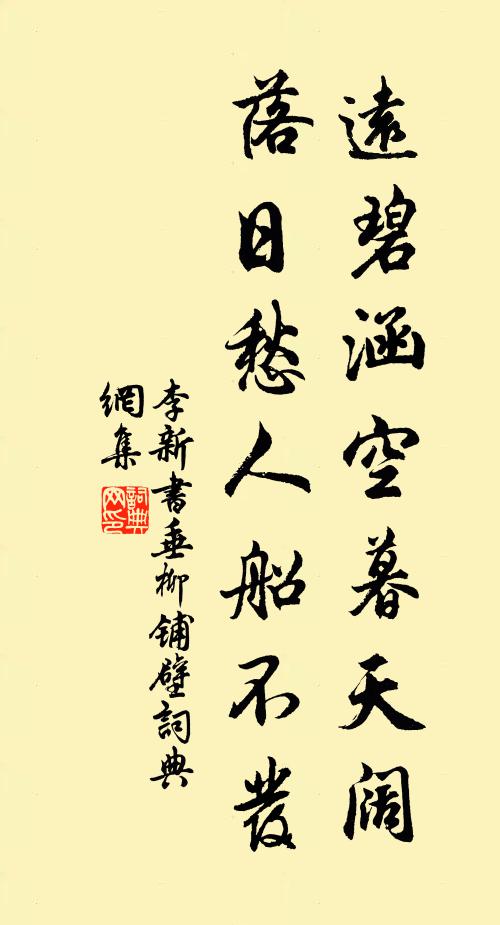 遠碧涵空暮天阔
落日愁人船不發
李新書垂柳鋪壁詞典
網集
詞典网印